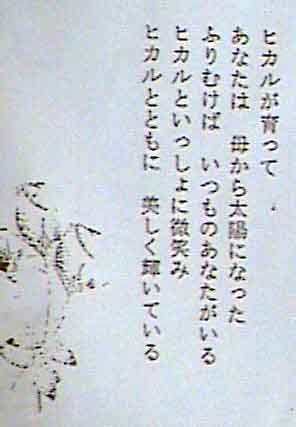 ヒカルが育って
あなたは　母から太陽になった
ふりむけば　いつものあなたがいる
ヒカルといっしょに微笑み
ヒカルとともに　美しく輝いている